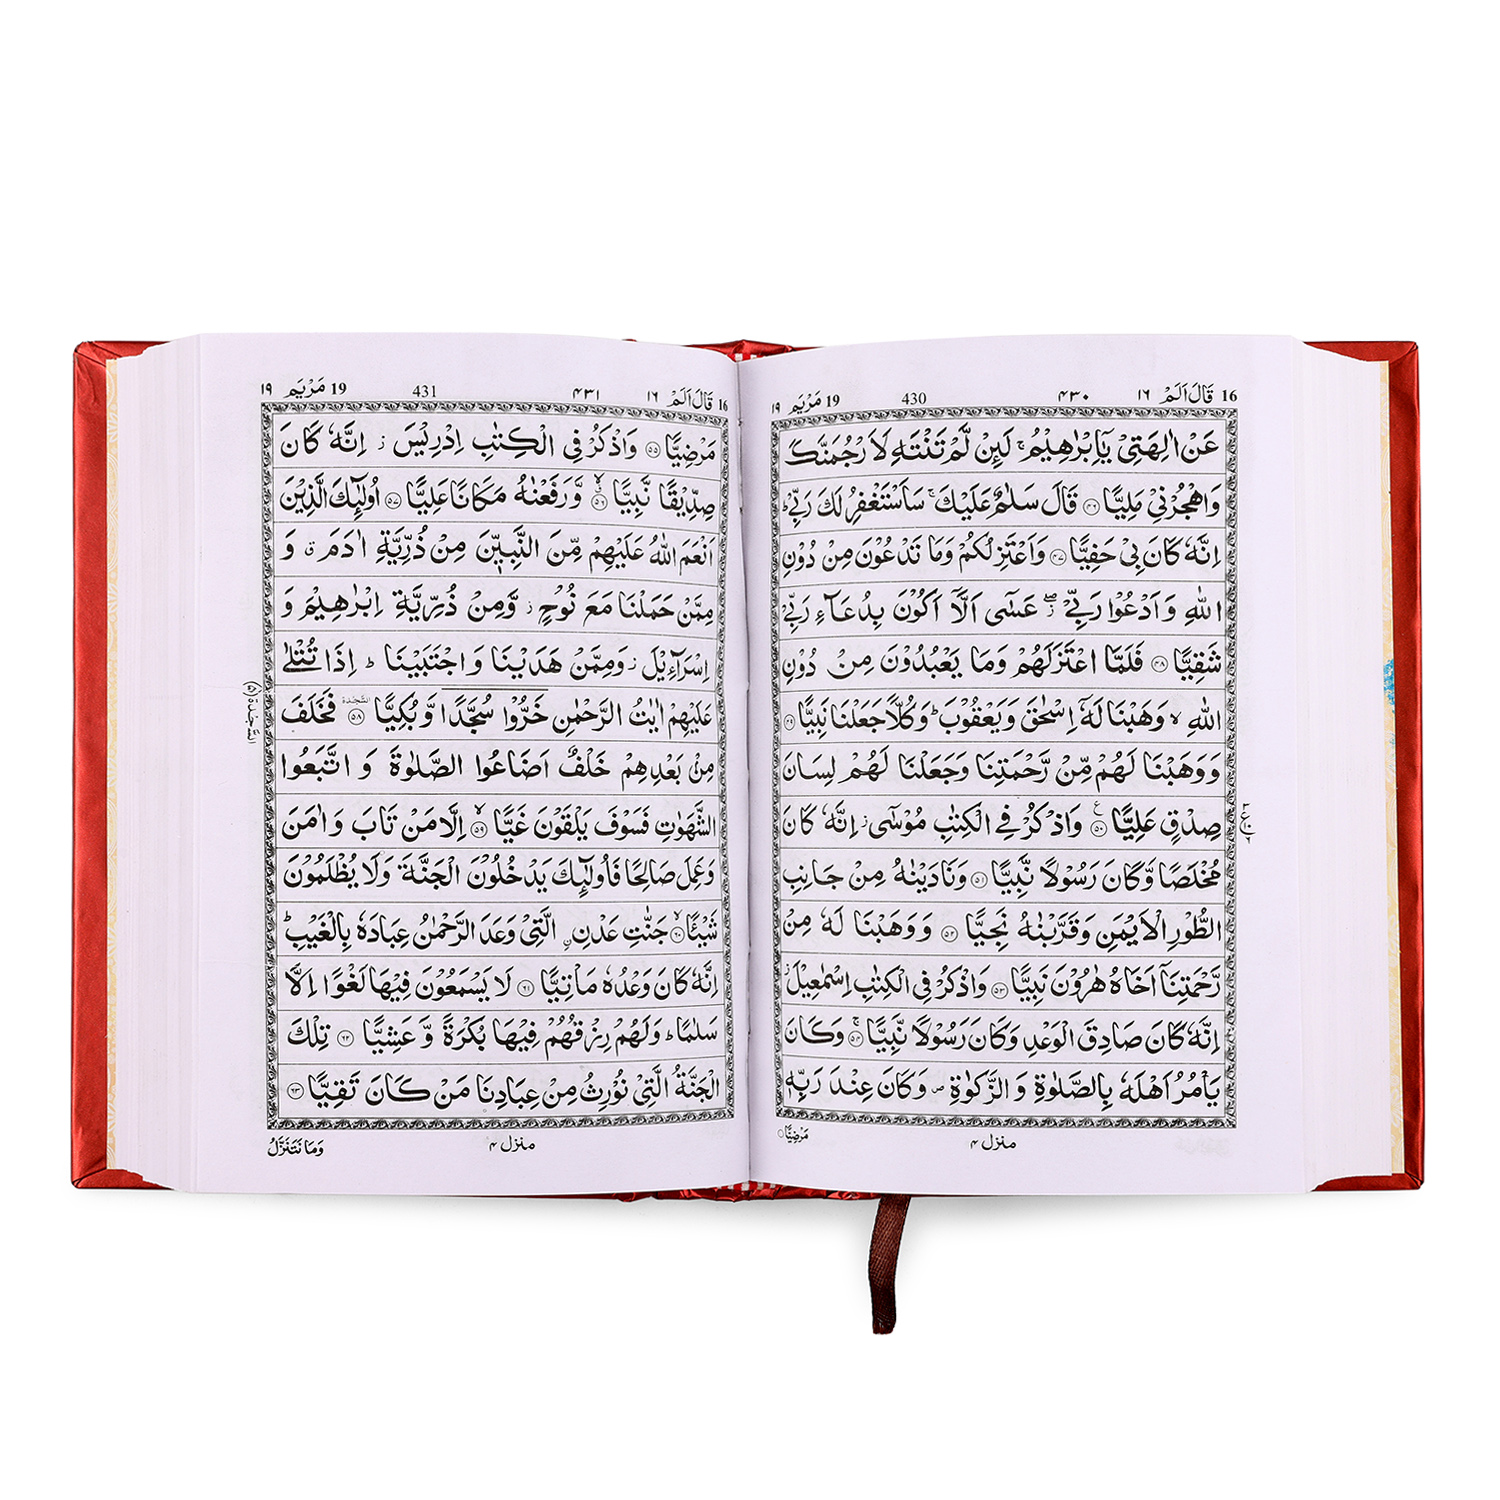 16 قَالَ اَلَمْ ١٦ ۴۳۰ 430 19 مَرْيَم ١٩
عَنْ اٰلِهَتِيْ يٰۤاِبْرٰهِيْمُ ۚ لَىِٕنْ لَّمْ تَنْتَهِ لَاَرْجُمَنَّكَ
وَاهْجُرْنِيْ مَلِيًّا ۝۴۶ قَالَ سَلٰمٌ عَلَيْكَ ۚ سَاَسْتَغْفِرُ لَكَ رَبِّيْ ؕ
اِنَّهٗ كَانَ بِيْ حَفِيًّا ۝۴۷ وَاَعْتَزِلُكُمْ وَمَا تَدْعُوْنَ مِنْ دُوْنِ
اللّٰهِ وَاَدْعُوْا رَبِّيْ ۖ ز عَسٰۤى اَلَّاۤ اَكُوْنَ بِدُعَآءِ رَبِّيْ
شَقِيًّا ۝۴۸ فَلَمَّا اعْتَزَلَهُمْ وَمَا يَعْبُدُوْنَ مِنْ دُوْنِ
اللّٰهِ ۙ وَهَبْنَا لَهٗۤ اِسْحٰقَ وَيَعْقُوْبَ ؕ وَكُلًّا جَعَلْنَا نَبِيًّا ۝۴۹
وَوَهَبْنَا لَهُمْ مِّنْ رَّحْمَتِنَا وَجَعَلْنَا لَهُمْ لِسَانَ
صِدْقٍ عَلِيًّا ۝۵۰ ع وَاذْكُرْ فِي الْكِتٰبِ مُوْسٰۤى ز اِنَّهٗ كَانَ
مُخْلَصًا وَّكَانَ رَسُوْلًا نَّبِيًّا ۝۵۱ وَنَادَيْنٰهُ مِنْ جَانِبِ
الطُّوْرِ الْاَيْمَنِ وَقَرَّبْنٰهُ نَجِيًّا ۝۵۲ وَوَهَبْنَا لَهٗ مِنْ
رَّحْمَتِنَاۤ اَخَاهُ هٰرُوْنَ نَبِيًّا ۝۵۳ وَاذْكُرْ فِي الْكِتٰبِ اِسْمٰعِيْلَ ز
اِنَّهٗ كَانَ صَادِقَ الْوَعْدِ وَكَانَ رَسُوْلًا نَّبِيًّا ۝۵۴ ۚ وَكَانَ
يَاْمُرُ اَهْلَهٗ بِالصَّلٰوةِ وَ الزَّكٰوةِ ص وَكَانَ عِنْدَ رَبِّهٖ
منزل ۴
مَرْضِيًّا
16 قَالَ اَلَمْ ١٦ ۴۳۱ 431 19 مَرْيَم ١٩
مَرْضِيًّا ۝۵۵ وَاذْكُرْ فِي الْكِتٰبِ اِدْرِيْسَ ز اِنَّهٗ كَانَ
صِدِّيْقًا نَّبِيًّا ۝۵۶ ۙ وَّرَفَعْنٰهُ مَكَانًا عَلِيًّا ۝۵۷ اُولٰٓىِٕكَ الَّذِيْنَ
اَنْعَمَ اللّٰهُ عَلَيْهِمْ مِّنَ النَّبِيّٖنَ مِنْ ذُرِّيَّةِ اٰدَمَ ق وَ
مِمَّنْ حَمَلْنَا مَعَ نُوْحٍ ز وَّمِنْ ذُرِّيَّةِ اِبْرٰهِيْمَ وَ
اِسْرَآءِيْلَ ز وَمِمَّنْ هَدَيْنَا وَاجْتَبَيْنَا ؕ اِذَا تُتْلٰى
عَلَيْهِمْ اٰيٰتُ الرَّحْمٰنِ خَرُّوْا سُجَّدًا وَّبُكِيًّا ۝۵۸ السَّجْدَة فَخَلَفَ
السَّجْدَة (۵)
مِنْ بَعْدِهِمْ خَلْفٌ اَضَاعُوا الصَّلٰوةَ وَاتَّبَعُوا
الشَّهَوٰتِ فَسَوْفَ يَلْقَوْنَ غَيًّا ۝۵۹ ۙ اِلَّا مَنْ تَابَ وَاٰمَنَ
وَعَمِلَ صَالِحًا فَاُولٰٓىِٕكَ يَدْخُلُوْنَ الْجَنَّةَ وَلَا يُظْلَمُوْنَ
شَيْـًٔا ۝۶۰ ۙ جَنّٰتِ عَدْنِ ۣ الَّتِيْ وَعَدَ الرَّحْمٰنُ عِبَادَهٗ بِالْغَيْبِ ؕ
اِنَّهٗ كَانَ وَعْدُهٗ مَاْتِيًّا ۝۶۱ لَا يَسْمَعُوْنَ فِيْهَا لَغْوًا اِلَّا
سَلٰمًا ؕ وَلَهُمْ رِزْقُهُمْ فِيْهَا بُكْرَةً وَّعَشِيًّا ۝۶۲ تِلْكَ
الْجَنَّةُ الَّتِيْ نُوْرِثُ مِنْ عِبَادِنَا مَنْ كَانَ تَقِيًّا ۝۶۳
منزل ۴
وَمَا نَتَنَزَّلُ